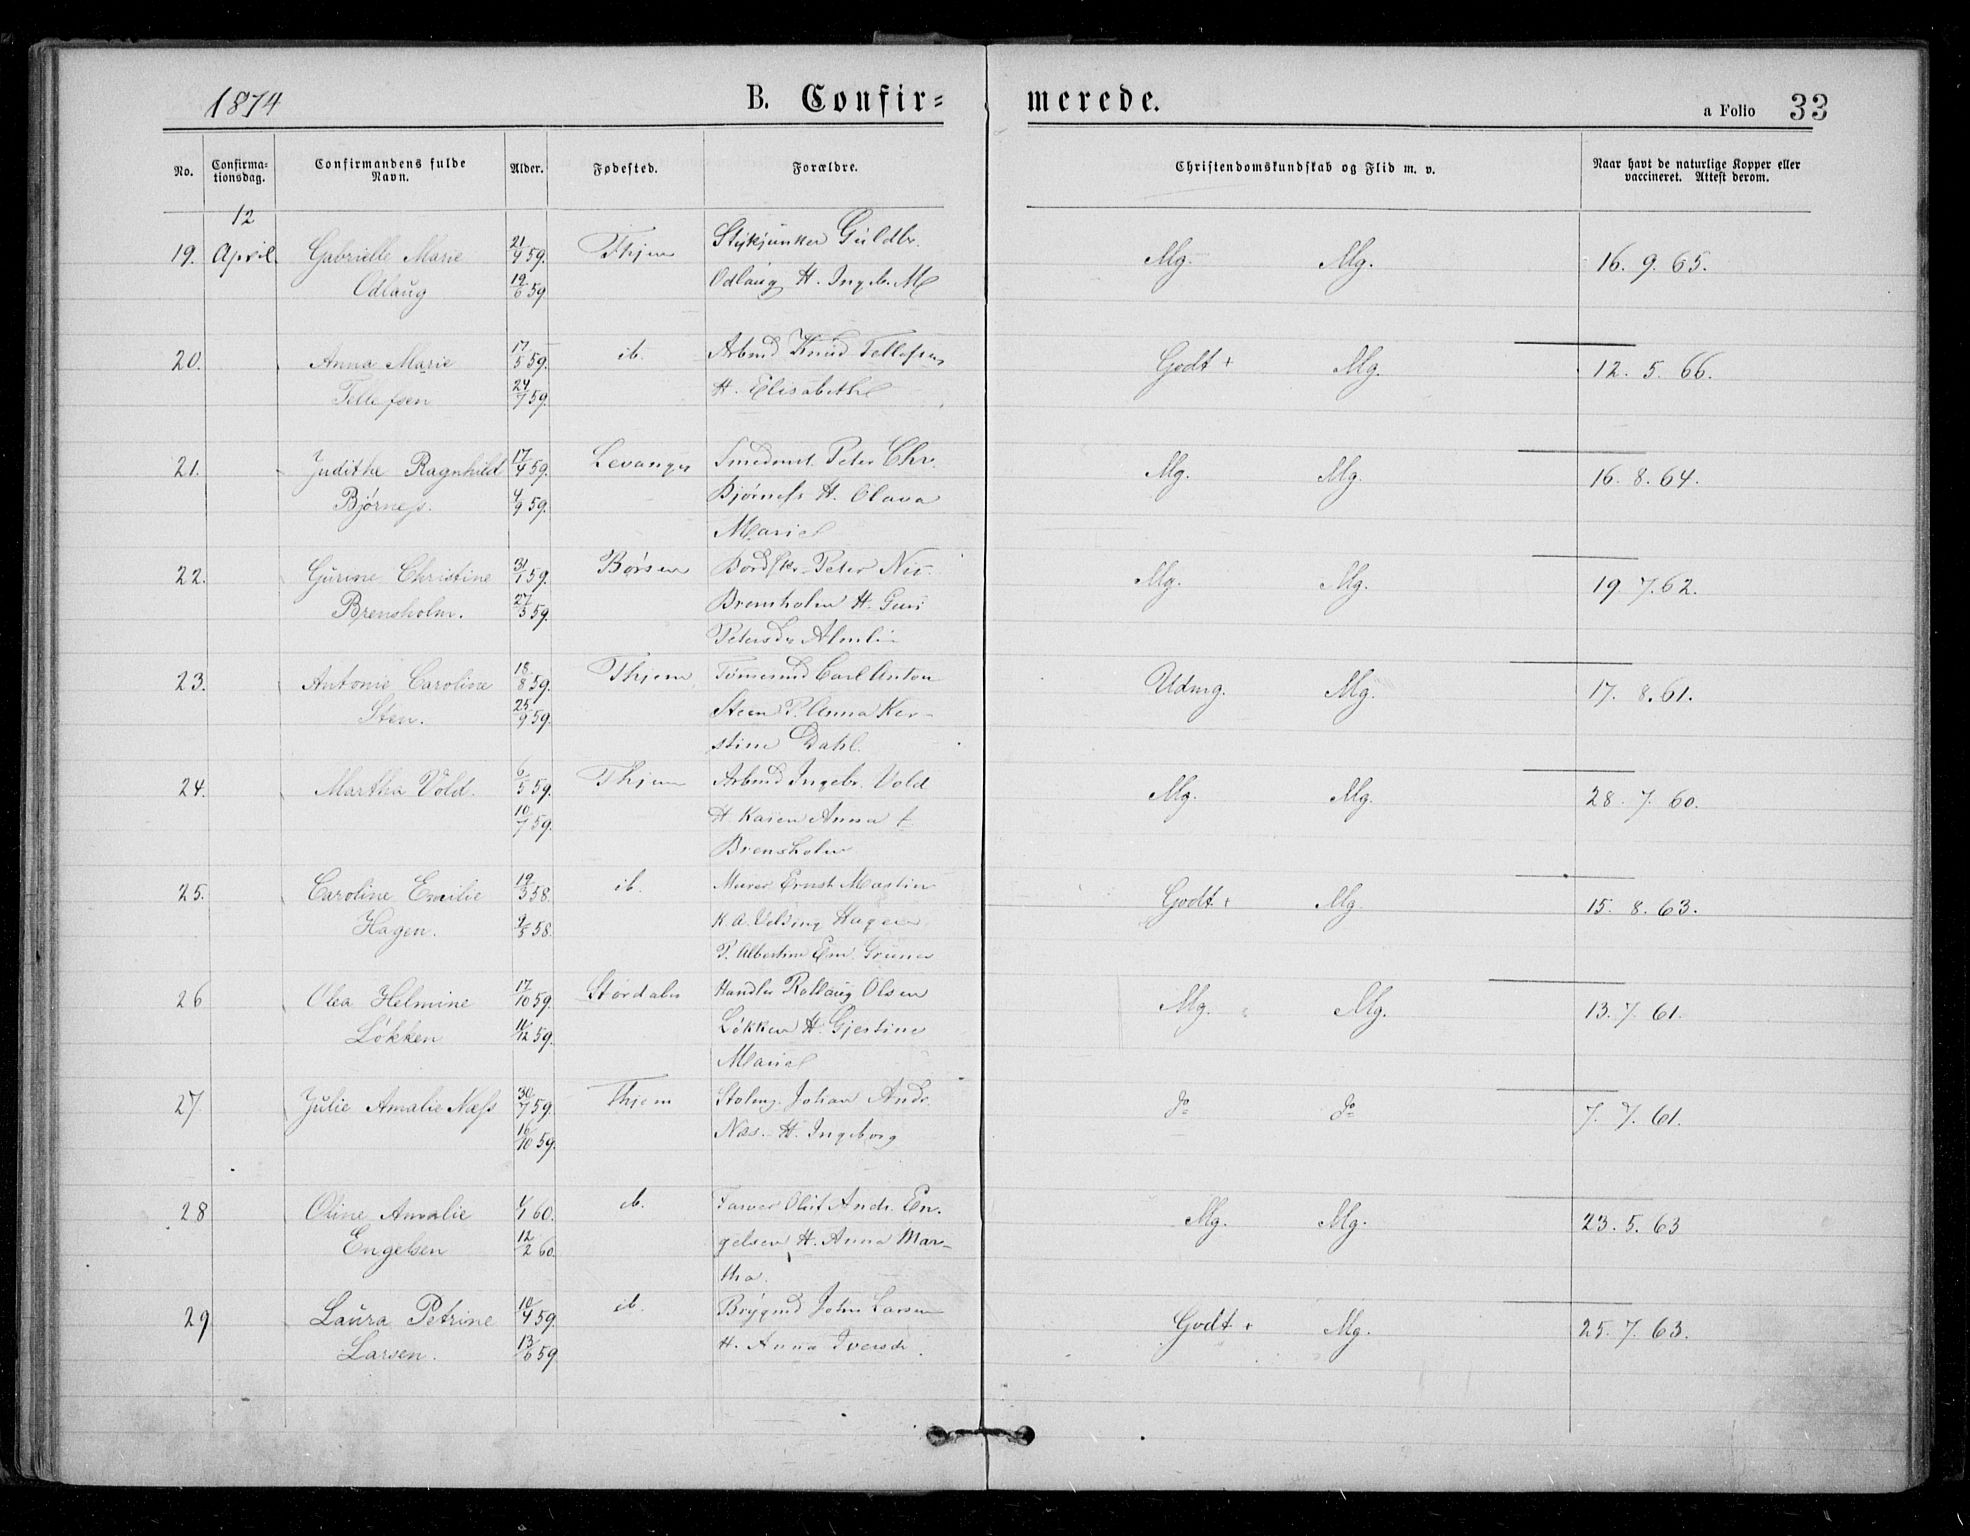 1874 B. Confir= merede. a Folio 33
No. Confirma=tionsdag. Confirmandens fulde Navn. Alder. Fødested. Forældre. Christendomskundskab og Flid m. v. Naar havt de naturlige Kopper eller vaccineret. Attest derom.
12
19. April Gabrielle Marie 21/4 59. Thjem Stykjunker Guldbr. Mg. Mg. 16. 9. 65.
Odlaug 19/6 59. Odlaug H. Ingb. M
20. Anna Marie 17/5 59. ib. Arbmd Knud Tellefsen Godt + Mg. 12. 5. 66.
Tellefsen 24/7 59. H. Elisabeth
21. Judithe Ragnhild 17/4 59. Levanger Smedmst. Peter Chr. Mg. Mg. 16. 8. 64.
Bjørness. 4/9 59. Bjørness H. Olava
Marie
22. Gurine Christine 31/1 59. Børsen Bordskr. Peter Nic. Mg. Mg. 19. 7. 62.
Brensholm. 27/3 59. Brensholm H. Guri
Petersdr Almli
23. Antonie Caroline 18/8 59. Thjem Tømmermd Carl Anton Udmrg. Mg. 17. 8. 61.
Sten. 25/9 59. Steen P. Anna Ker-
stine Dahl.
24. Martha Vold. 6/5 59. Thjem Arbmd Ingebr. Vold Mg. Mg. 28. 7. 60.
10/7 59. H. Karen Anna f.
Brensholm
25. Caroline Emilie 19/3 58. ib. Murer Ernst Martin Godt + Mg. 15. 8. 63.
Hagen. 9/5 58. K. A. Hagen
P. Albertine Em. Gruner
26 Olea Helmine 17/10 59. Stordalen Handler Rollaug Olsen Mg. Mg. 13. 7. 61.
Løkken 11/12 59. Løkken H. Gjertine
Marie
27 Julie Amalie Næss 30/7 59. Thjem Stolmg. Johan Andr. do do 7. 7. 61.
16/10 59. Næs. H. Ingeborg
28 Oline Amalie 1/1 60. ib. Farver Oluf Andr. En- Mg. Mg. 23. 5. 63
Engelsen 12/2 60. gelsen H. Anna Mar-
tha.
29 Laura Petrine 10/4 59. ib. Brygmd John Larsen Godt + Mg. 25. 7. 63.
Larsen. 13/6 59 H. Anna Iversdr.